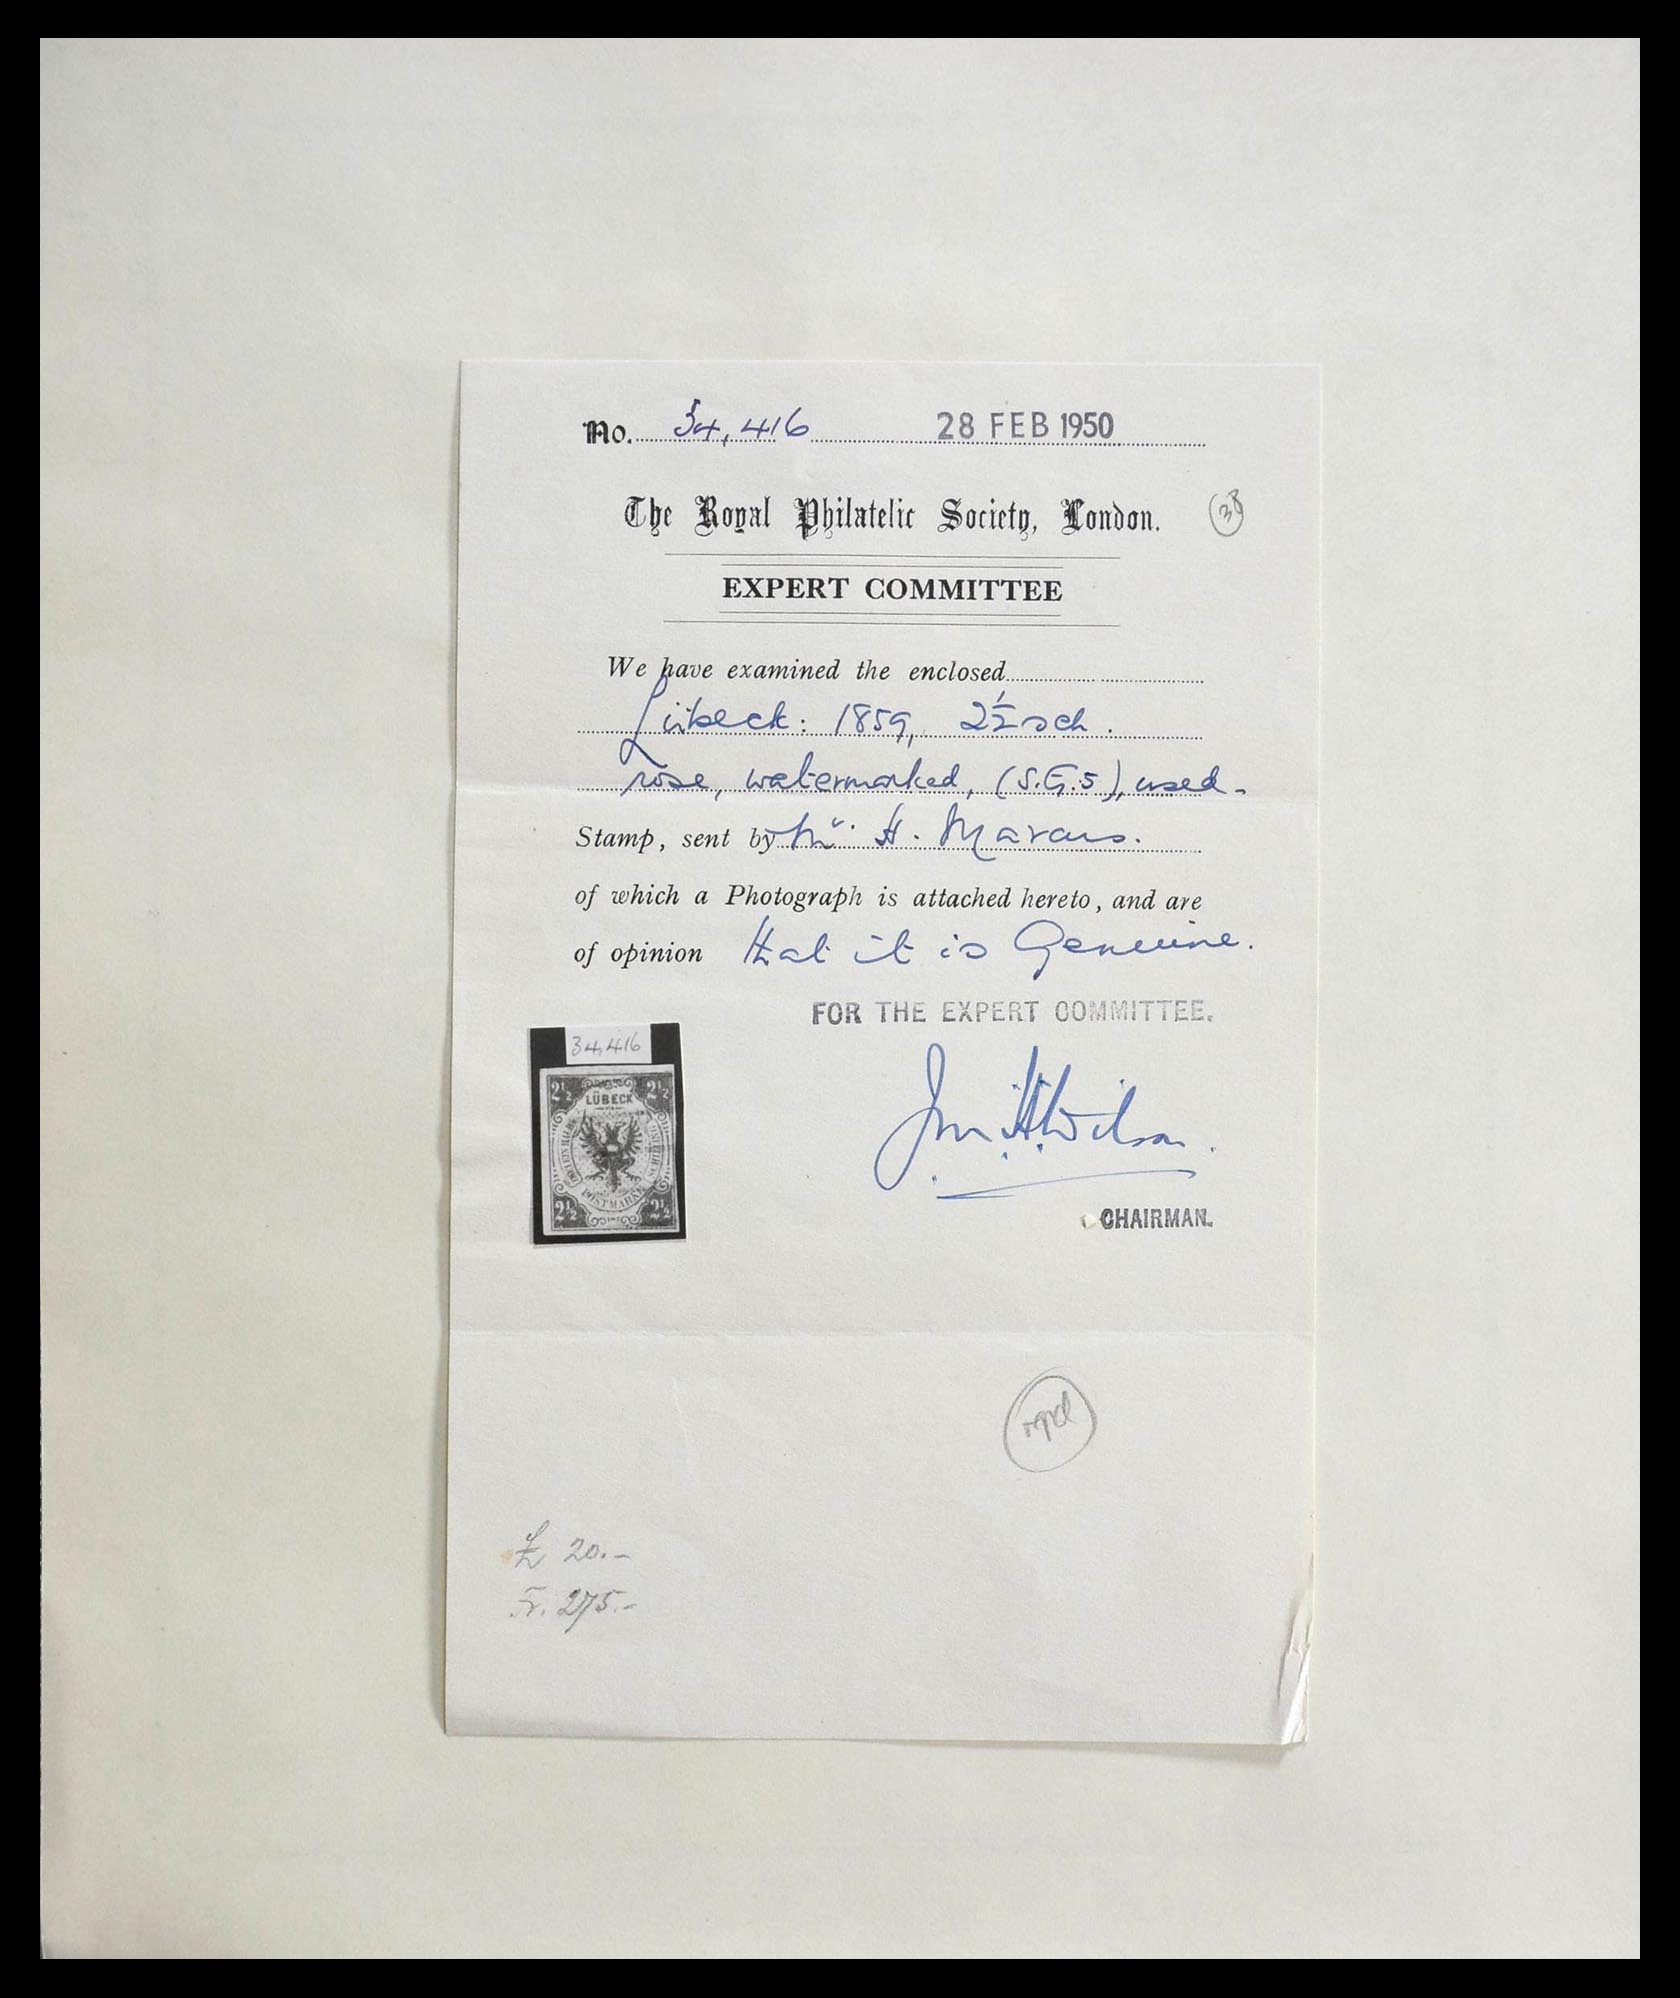 No. 34,416 28 FEB 1950
The Royal Philatelic Society, London.
EXPERT COMMITTEE
We have examined the enclosed
Lübeck: 1859, 2½ sch.
rose, watermarked, (S.G.5), used.
Stamp, sent by Mr. H. Marcus.
of which a Photograph is attached hereto, and are
of opinion that it is Genuine.
FOR THE EXPERT COMMITTEE.
34,416
2½ 2½
LÜBECK
ZWEI EIN HALB
SCHILLING
POSTMARKE
2½ 2½
Wilson
CHAIRMAN.
£ 20.-
Fr. 275.-